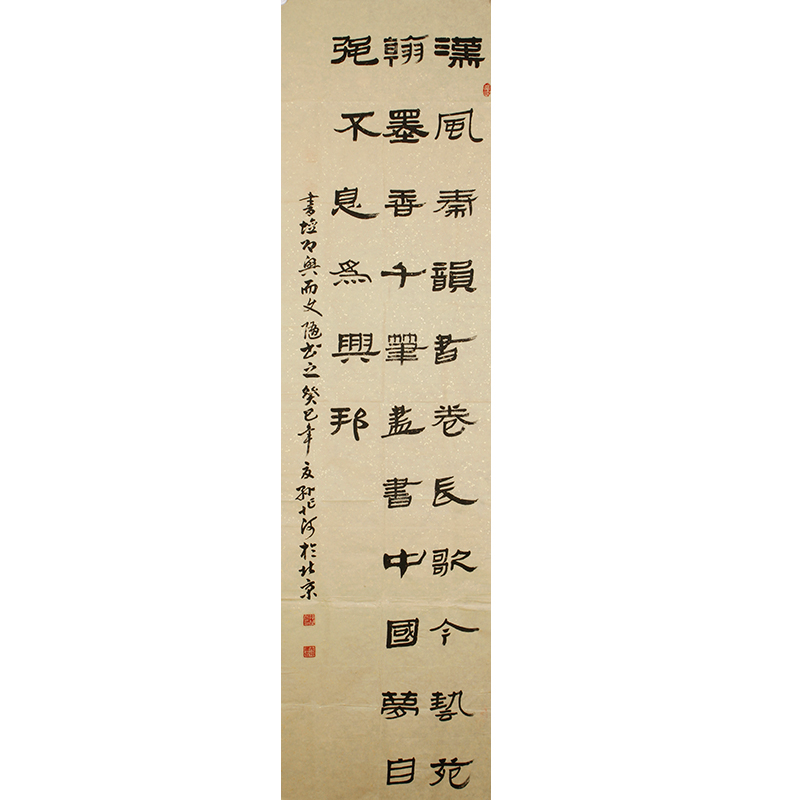 漢風秦韻書卷長歌今藝苑
翰墨香千筆盡書中國夢自
强不息為興邦
書壇乃興而文隨书之癸巳年夏孙北河於北京